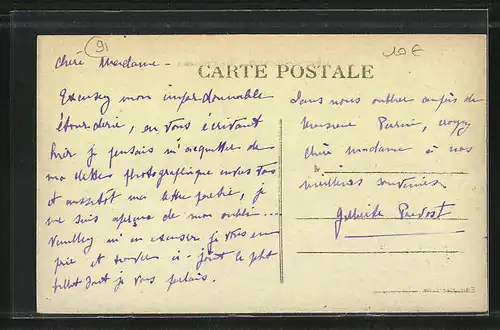 91
10€
Chère Madame -
CARTE POSTALE
Excusez mon impardonnable
étourderie, en vous écrivant
hier je pensais m'acquitter de
ma dette photographique envers vous
et aussitôt ma lettre partie, je
me suis aperçue de mon oubli ...
Veuillez m'en excuser je vous en
prie et trouver ci-joint la phot
dont je vous parlais.
Sans nous oublier auprès de
Monsieur Perrin, croyez
chère madame à nos
meilleurs souvenirs.
Gilberte Prevost